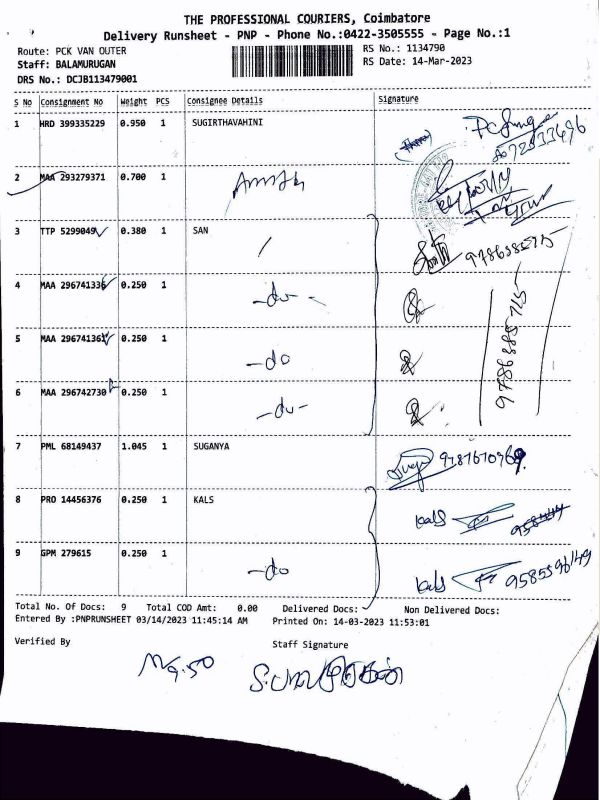 THE PROFESSIONAL COURIERS, Coimbatore
Delivery Runsheet - PNP - Phone No.:0422-3505555 - Page No.:1
Route: PCK VAN OUTER
RS No.: 1134790
Staff: BALAMURUGAN
RS Date: 14-Mar-2023
DRS No.: DCJB113479001
S No Consignment No Weight PCS Consignee Details Signature
1 HRD 399335229 0.950 1 SUGIRTHAVAHINI
2 MAA 293279371 0.700 1
3 TTP 5299049 0.380 1 SAN
4 MAA 296741336 0.250 1 -do-
5 MAA 296741361 0.250 1 -do
6 MAA 296742730 0.250 1 -do-
9786385715
7 PML 68149437 1.045 1 SUGANYA
8 PRO 14456376 0.250 1 KALS Kals
9 GPM 279615 0.250 1 -do Kals 9585596149
Total No. Of Docs: 9 Total COD Amt: 0.00 Delivered Docs: Non Delivered Docs:
Entered By :PNPRUNSHEET 03/14/2023 11:45:14 AM Printed On: 14-03-2023 11:53:01
Verified By Staff Signature